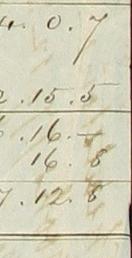 4. 0. 7
2. 15. 5
6. 16. –
16. 8
7. 12. 8